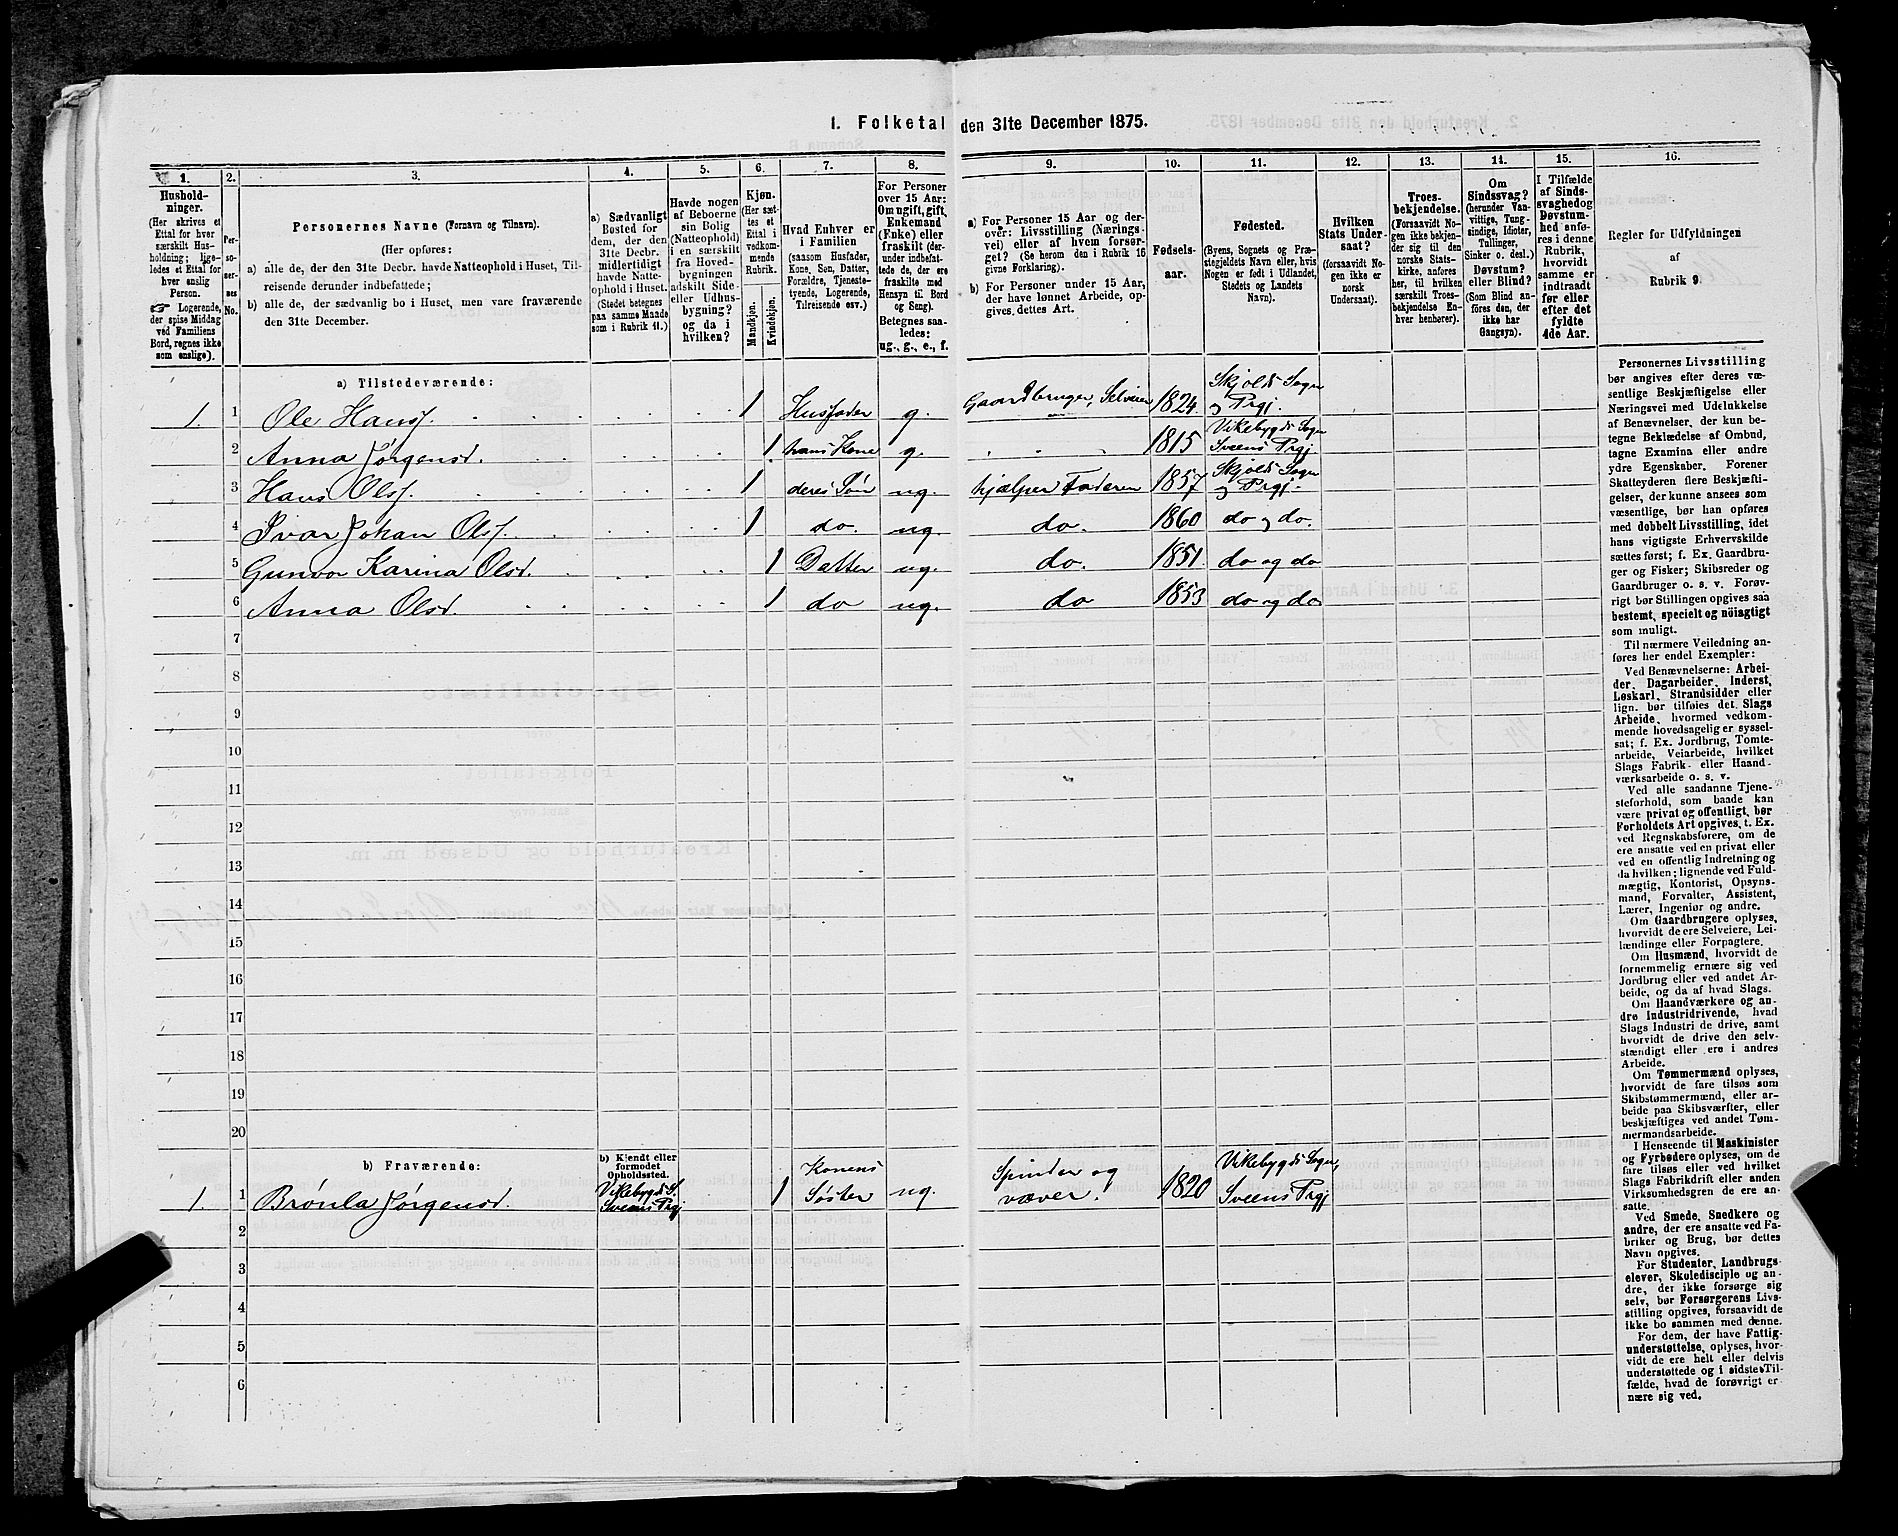 1. Folketal den 31te December 1875.
1. 2. 3. 4. 5. 6. 7. 8. 9. 10. 11. 12. 13. 14. 15. 16.
Hushold-
ninger.
(Her skrives et
Ettal for hver
særskilt Hus-
holdning; lige-
ledes et Ettal for
hver enslig
Person.
☞ Logerende,
der spise Middag
ved Familiens
Bord, regnes ikke
som enslige).
Per-
so-
ner-
nes
No.
Personernes Navne (Fornavn og Tilnavn).
(Her opføres:
a) alle de, der den 31te Decbr. havde Natteophold i Huset, Til-
reisende derunder indbefattede;
b) alle de, der sædvanlig bo i Huset, men vare fraværende
den 31te December.
a) Sædvanligt
Bosted for
dem, der den
31te Decbr.
midlertidigt
havde Natte-
ophold i Huset.
(Stedet betegnes
paa samme Maade
som i Rubrik 11.)
Havde nogen
af Beboerne
sin Bolig
(Natteophold)
i en særskilt
fra Hoved-
bygningen
adskilt Side-
eller Udhus-
bygning?
og da i
hvilken?
Kjøn.
(Her sæt-
tes et
Ettal i
vedkom-
mende
Rubrik.
Mandkjøn.
Kvindekjøn.
Hvad Enhver er
i Familien
(saasom Husfader,
Kone, Søn, Datter,
Forældre, Tjeneste-
tyende, Logerende,
Tilreisende osv.)
For Personer
over 15 Aar:
Om ugift, gift,
Enkemand
(Enke) eller
fraskilt (der-
under indbefat-
tede de, der ere
fraskilte med
Hensyn til Bord
og Seng).
Betegnes saa-
ledes:
ug., g., e., f.
a) For Personer 15 Aar og der-
over: Livsstilling (Nærings-
vei) eller af hvem forsør-
get? (Se herom den i Rubrik 16
givne Forklaring).
b) For Personer under 15 Aar,
der have lønnet Arbeide, op-
gives dettes Art.
Fødsels-
aar.
Fødested.
(Byens, Sognets og Præ-
stegjeldets Navn eller, hvis
Nogen er født i Udlandet,
Stedets og Landets
Navn).
Hvilken
Stats Under-
saat?
(forsaavidt No-
gen ikke er
norsk
Undersaat).
Troes-
bekjendelse.
(Forsaavidt No-
gen ikke bekjen-
der sig til den
norske Stats-
kirke, anføres
her, til hvilken
særskilt Troes-
bekjendelse En-
hver henhører).
Om
Sindssvag?
(herunder Van-
vittige, Tung-
sindige, Idioter,
Tullinger,
Sinker o. desl.)
Døvstum?
eller Blind?
(Som Blind an-
føres den, der
ikke har
Gangsyn).
I Tilfælde
af Sinds-
svaghed og
Døvstum-
hed anfø-
res i denne
Rubrik,
hvorvidt
samme er
indtraadt
før eller
efter det
fyldte
4de Aar.
Regler for Udfyldningen
af
Rubrik 9.
a) Tilstedeværende:
1. 1 Ole Hansf. 1 Husfader g. Gaardbruger, Selveier 1824 Skjolds Sogn
og Prgj.
2 Anna Jørgensd. 1 hans Kone g. 1815 Vikebygds Sogn
Sveens Prgj.
3 Hans Olsf. 1 deres Søn ug. hjælper Faderen 1857 Skjolds Sogn
og Prgj.
4 Ivar Johan Olsf. 1 do. ug. do. 1860 do og do.
5 Gunvor Karina Olsd. 1 Datter ug. do. 1851 do og do
6 Anna Olsd. 1 do ug. do 1853 do og do
7
8
9
10
11
12
13
14
15
16
17
18
19
20
b) Fraværende:
b) Kjendt eller
formodet
Opholdssted.
1. 1 Brønla Jørgensd. Vikebygds S.
Sveens Prgj 1 Konens
Søster ug. Spinder og
væver. 1820 Vikebygds Sogn,
Sveens Prgj
2
3
4
5
6
Personernes Livsstilling
bør angives efter deres væ-
sentlige Beskjæftigelse eller
Næringsvei med Udelukkelse
af Benævnelser, der kun be-
tegne Beklædelse af Ombud,
tagne Examina eller andre
ydre Egenskaber. Forener
Skatteyderen flere Beskjæfti-
gelser, der kunne ansees som
væsentlige, bør han opføres
med dobbelt Livsstilling, idet
hans vigtigste Erhvervskilde
sættes først; f. Ex. Gaardbru-
ger og Fisker; Skibsreder og
Gaardbruger o. s. v. Forøv-
rigt bør Stillingen opgives saa
bestemt, specielt og nöiagtigt
som muligt.
Til nærmere Veiledning an-
føres her endel Exempler:
Ved Benævnelserne: Arbei-
der, Dagarbeider, Inderst,
Løskarl, Strandsidder eller
lign. bør tilføies det Slags
Arbeide, hvormed vedkom-
mende hovedsagelig er syssel-
sat; f. Ex. Jordbrug, Tomte-
arbeide, Veiarbeide, hvilket
Slags Fabrik- eller Haand-
værksarbeide o. s. v.
Ved alle saadanne Tjene-
steforhold, som baade kan
være privat og offentligt, bør
Forholdets Art opgives, t. Ex.
ved Regnskabsførere, om de
ere ansatte ved en privat eller
ved en offentlig Indretning og
da hvilken; lignende ved Fuld-
mægtig, Kontorist, Opsyns-
mand, Forvalter, Assistent,
Lærer, Ingeniør og andre.
Om Gaardbrugere oplyses,
hvorvidt de ere Selveiere, Lei-
lændinge eller Forpagtere.
Om Husmænd, hvorvidt de
fornemmelig ernære sig ved
Jordbrug eller ved andet Ar-
beide, og da af hvad Slags.
Om Haandværkere og an-
dre Industridrivende, hvad
Slags Industri de drive, samt
hvorvidt de drive den selv-
stændigt eller ere i andres
Arbeide.
Om Tømmermænd oplyses,
hvorvidt de fare tilsøs som
Skibstømmermænd, eller ar-
beide paa Skibsværfter, eller
beskjæftiges ved andet Tøm-
mermandsarbeide.
I Henseende til Maskinister
og Fyrbødere oplyses, om de
fare tilsøs eller ved hvilket
Slags Fabrikdrift eller anden
Virksomhedsgren de ere an-
satte.
Ved Smede, Snedkere og
andre, der ere ansatte ved Fa-
briker og Brug, bør dettes
Navn opgives.
For Studenter, Landbrugs-
elever, Skoledisciple og an-
dre, der ikke forsørge sig
selv, bør Forsørgerens Livs-
stilling opgives, forsaavidt de
ikke bo sammen med denne.
For dem, der have Fattig-
understøttelse, oplyses, hvor-
vidt de ere helt eller delvis
understøttede og i sidste Til-
fælde, hvad de forøvrigt er-
nære sig ved.